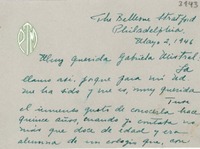 3993
The Bellevue Stratford
Philadelphia
Mayo 2, 1946
Muy querida Gabriela Mistral: La
llamo así, porque para mi Ud.
me ha sido y me es, muy querida.
Tuve
el inmenso gusto de conocerla hace
quince años, cuando yo contaba no
más que doce de edad y era
alumna de un colegio que, con